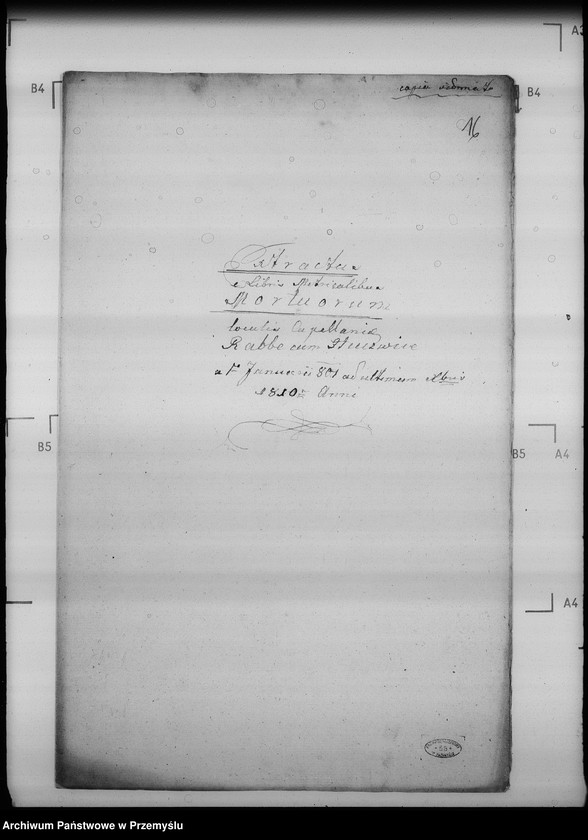 A3
B4
B4
copia vidimata
16
Extractus
e Libris Metricalibus
Mortuorum
localis Capellaniæ
Rabbe cum Huzwice
a 1a Januarii 801 ad ultimum Xbris
1810mi Anni
B5
B5
A4
A4
55
Archiwum Państwowe w Przemyślu